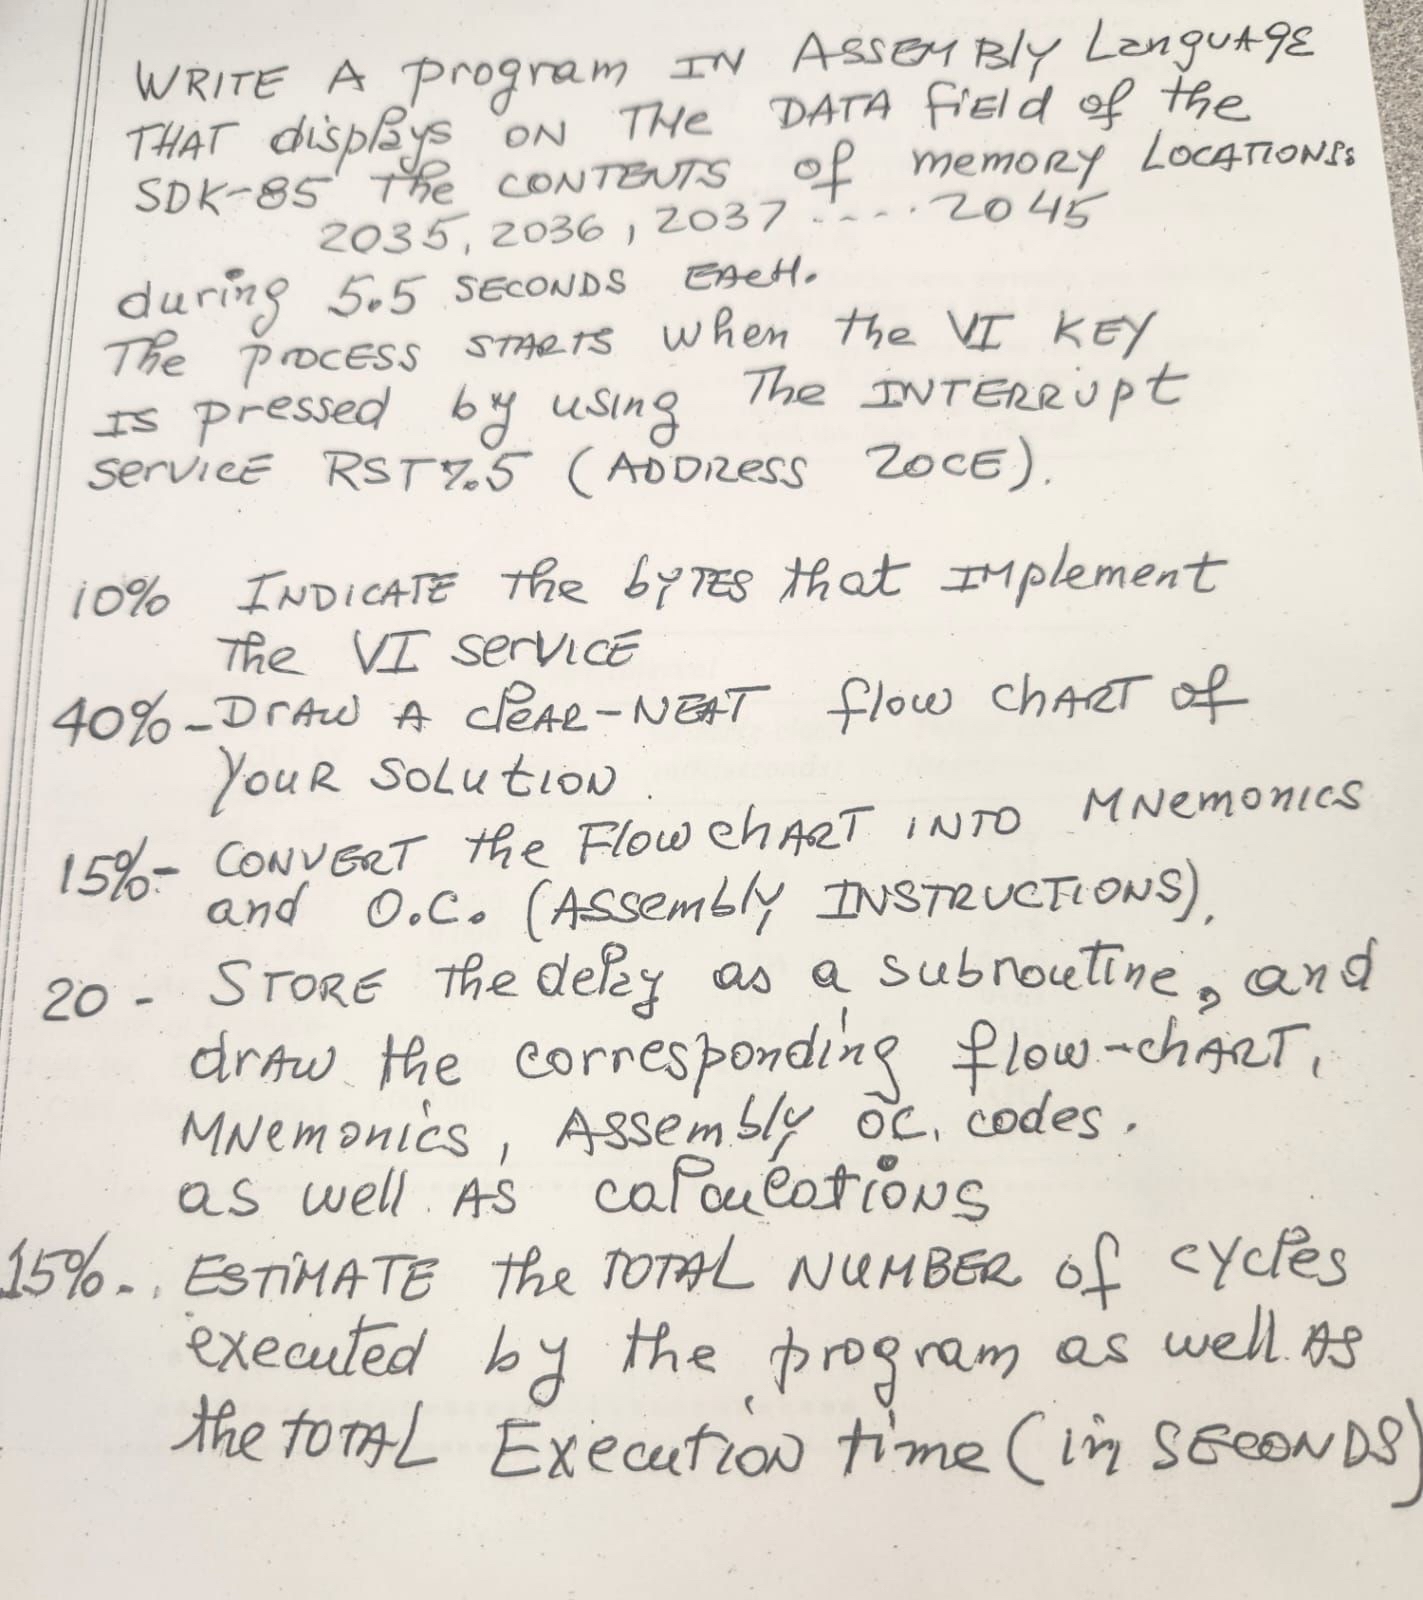 WRITE A program IN ASSEMBly LanguAgE
THAT displays ON THe DATA fiEld of the
SDK-85 The CONTENTS of memoRY LOCATIONS:
2035, 2036, 2037 ..... 2045
during 5.5 SECONDS EACH.
The PROCESS STARTS when the VI KEY
IS pressed by using The INTERRupt
SERVICE RST7.5 (ADDRESS 20CE).
10% INDICATE The bYTES that IMplement
The VI SERVICE
40% - DRAW A clEAR-NEAT flow chART of
YOUR SOLUtION.
15% - CONVERT the Flow chART INTO MNemONICS
and O.C. (ASSembly INSTRUCTIONS).
20 - STORE The delay as a subroutine, and
drAW the corresponding flow-chART,
MNemonics, ASSembly OC. codes.
as well AS calculations
15% - . ESTIMATE the TOTAL NUMBER of cycles
executed by the program as well AS
the TOTAL EXecutION time (in SECONDS)